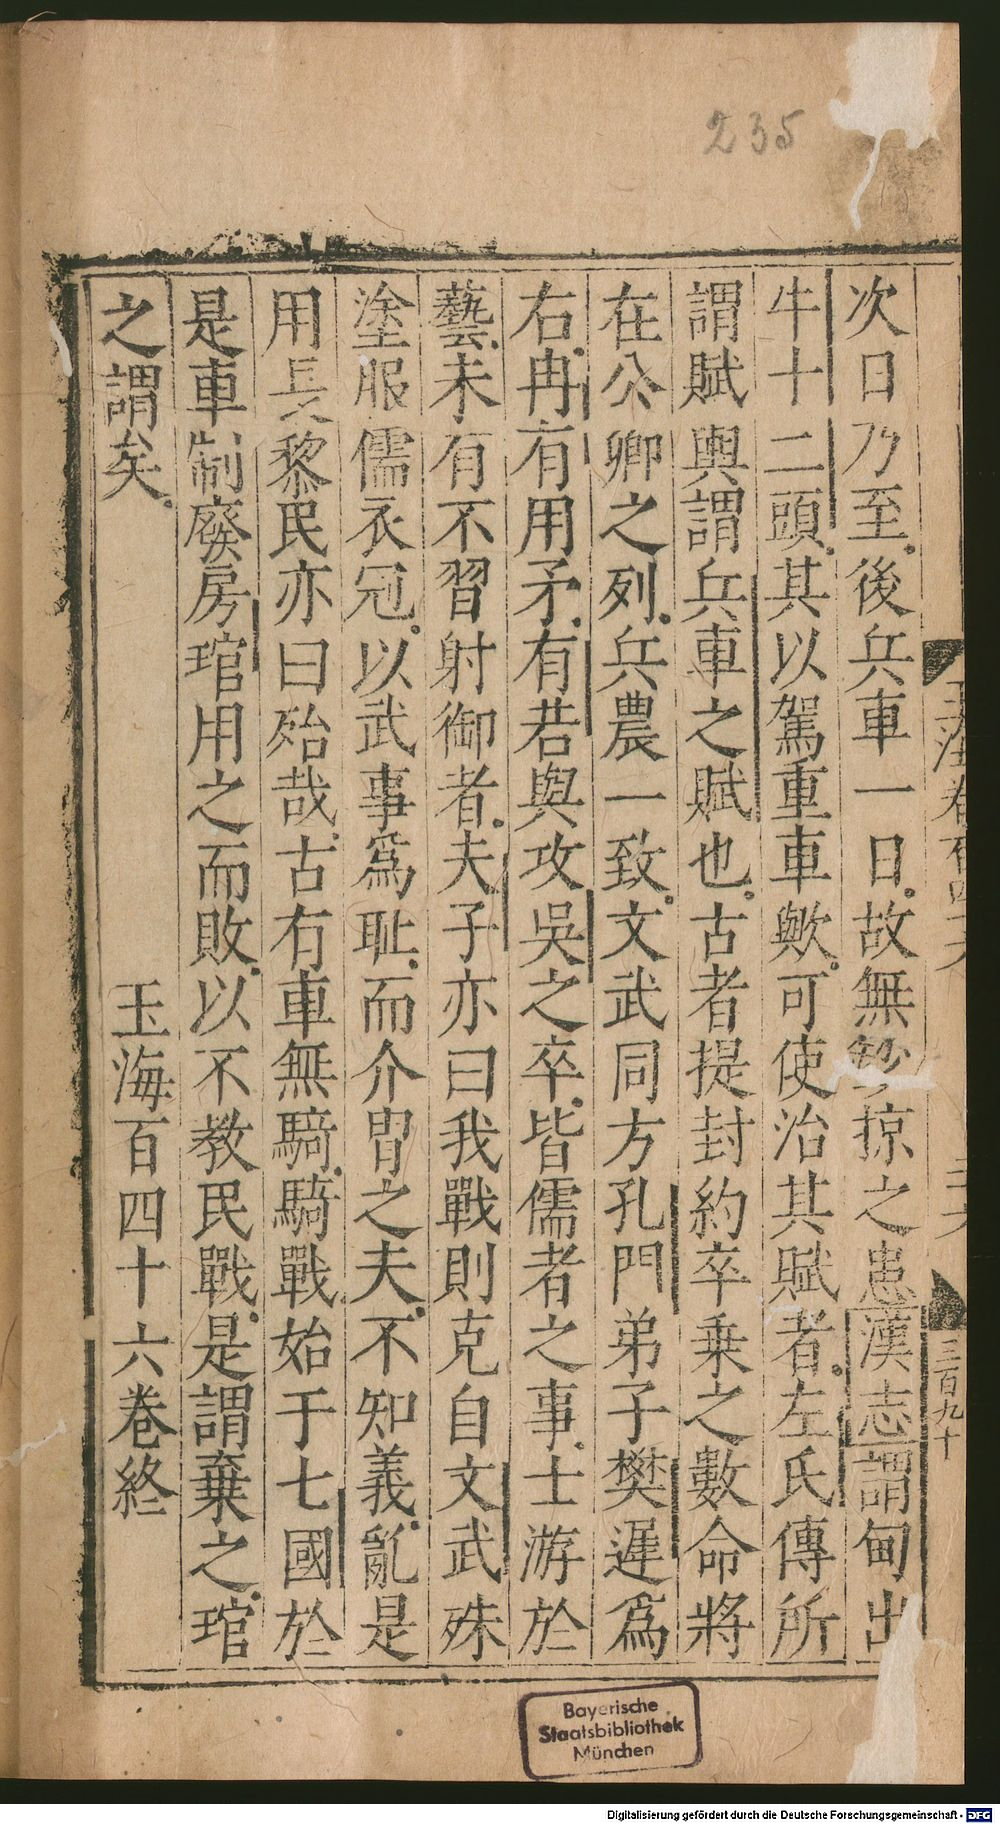 235
玉海卷百四十六
二十六
三百九十
次日乃至後兵車一日故無鈔掠之患漢志謂甸出
牛十二頭其以駕重車歟可使治其賦者左氏傳所
謂賦輿謂兵車之賦也古者提封約卒乗之數命將
在公卿之列兵農一致文武同方孔門弟子樊遲爲
右冉有用矛有若與攻吳之卒皆儒者之事士游於
藝未有不習射御者夫子亦曰我戰則克自文武殊
塗服儒衣冠以武事爲耻而介冑之夫不知義亂是
用長黎民亦曰殆哉古有車無騎騎戰始于七國於
是車制廢房琯用之而敗以不教民戰是謂棄之琯
之謂矣
玉海百四十六卷終
Bayerische
Staatsbibliothek
München
Digitalisierung gefördert durch die Deutsche Forschungsgemeinschaft - DFG